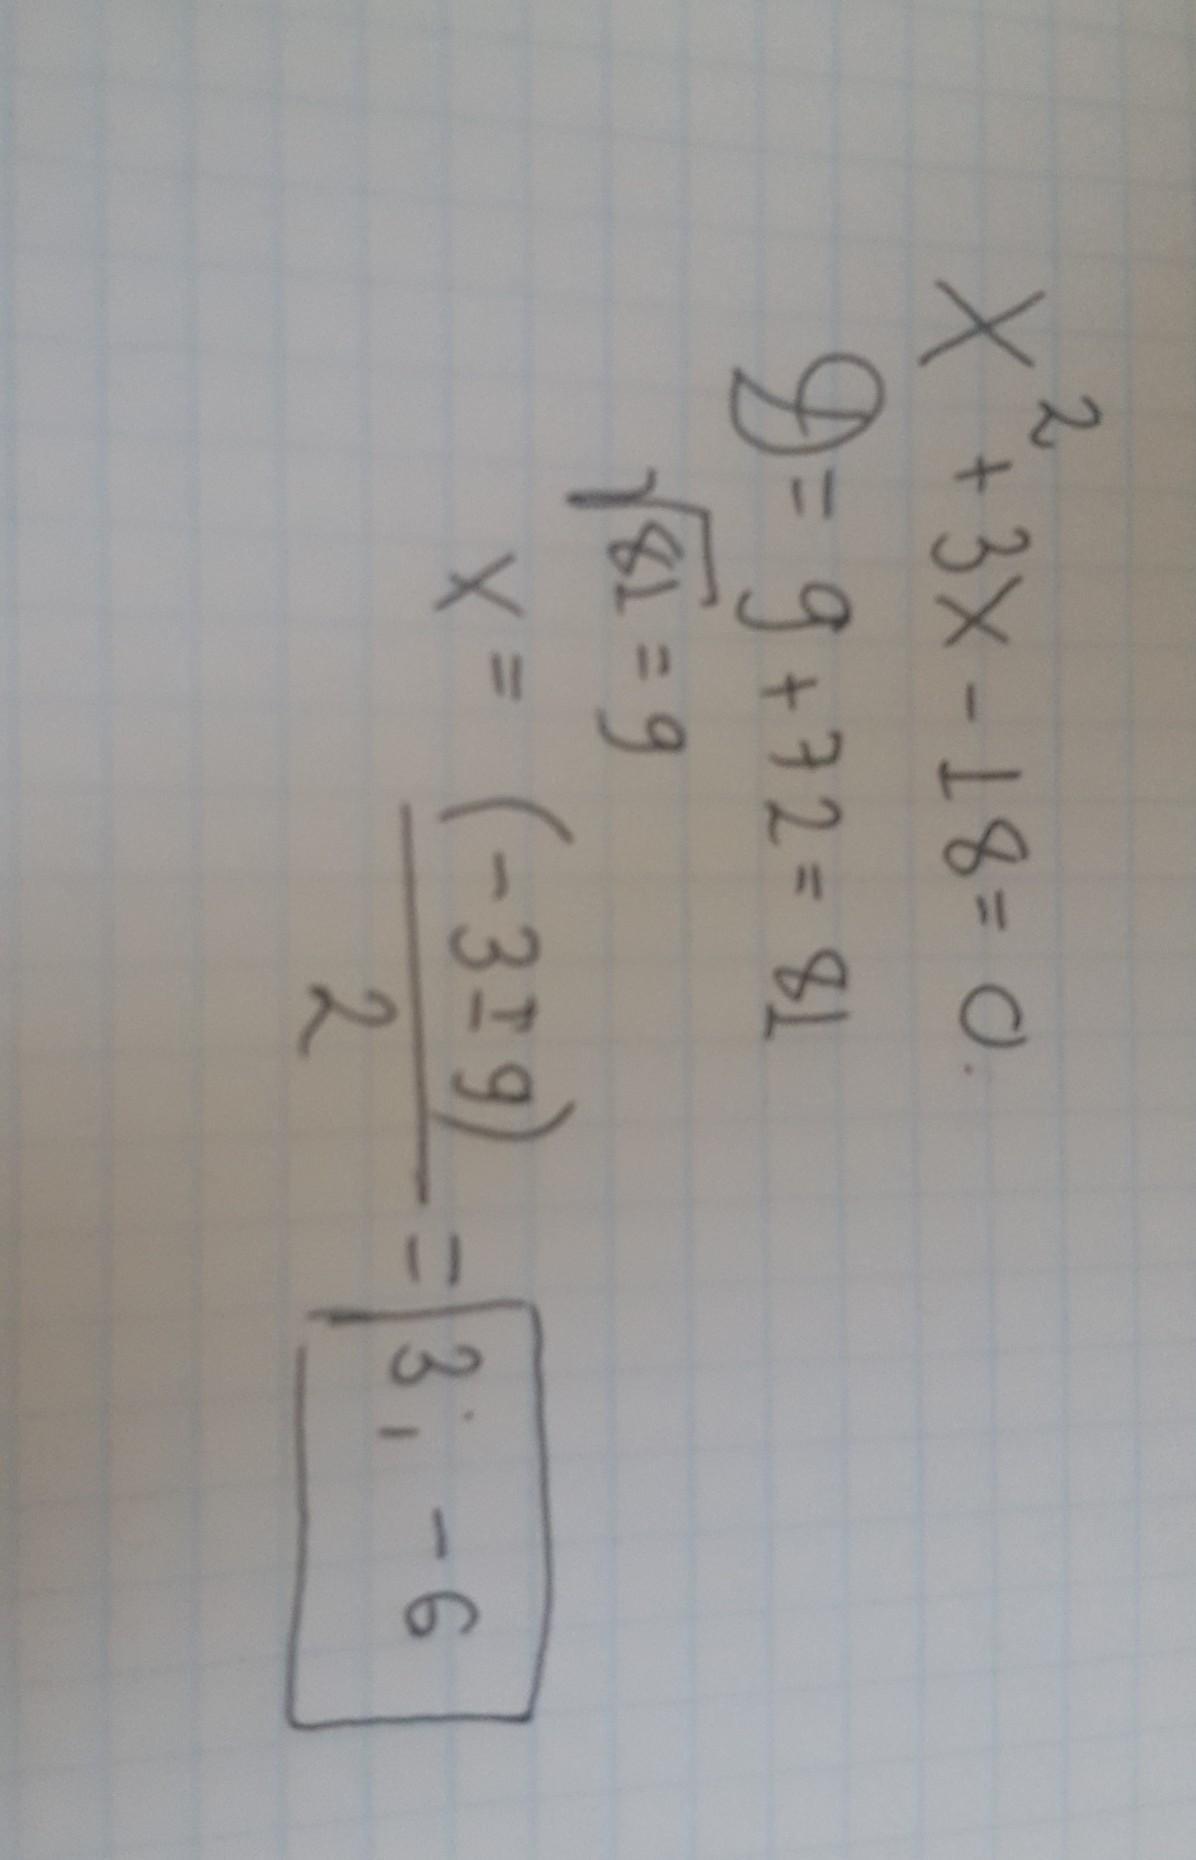 x² + 3x - 18 = 0.
D = 9 + 72 = 81
√81 = 9
x = (-3 ± 9) / 2 = 3; -6